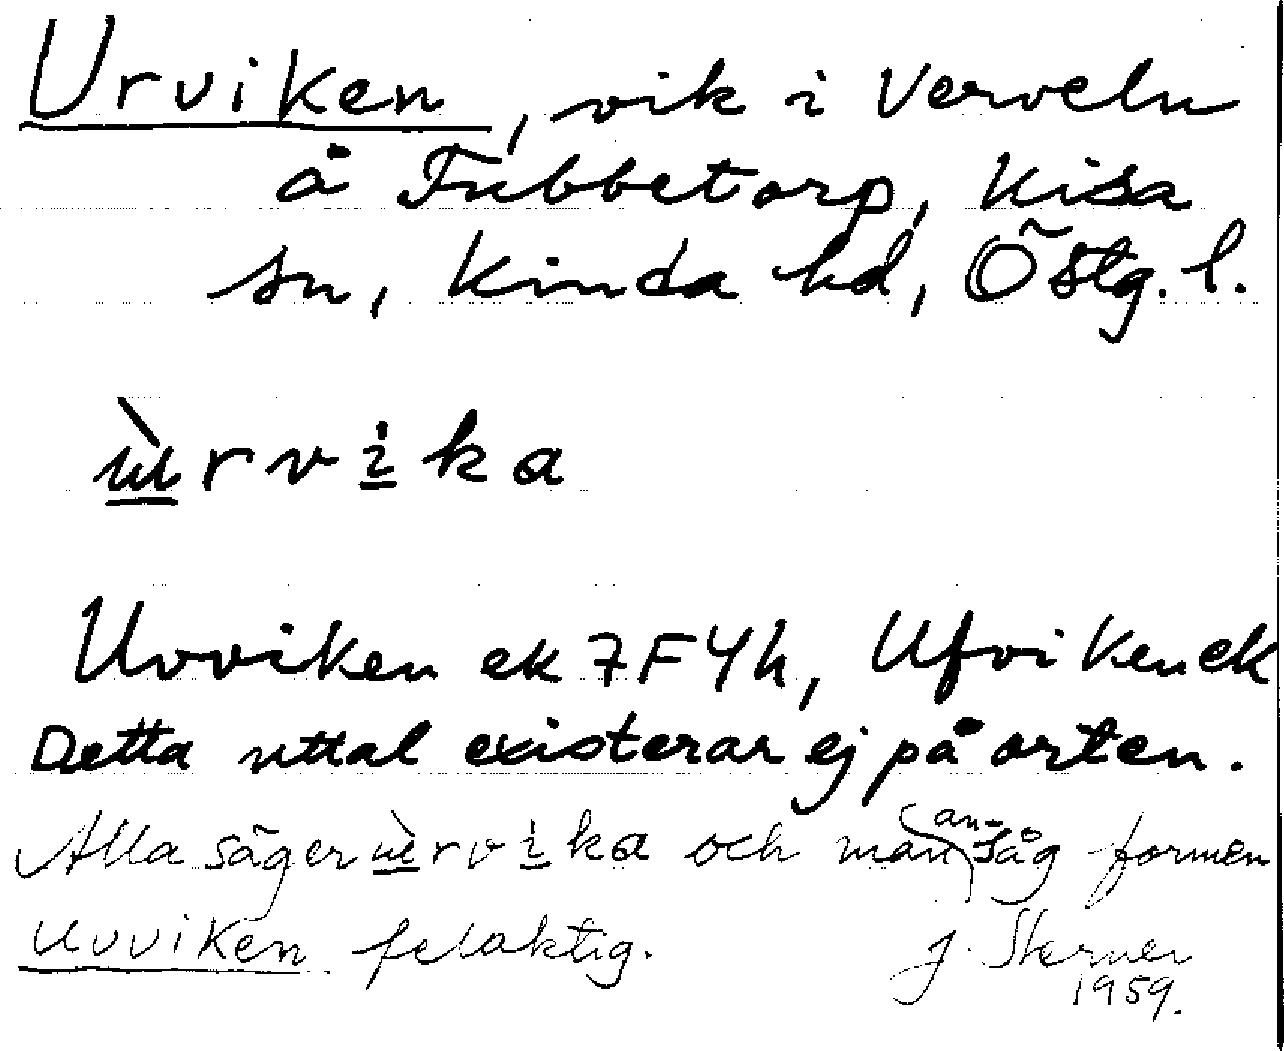 Urviken, vik i Verveln
å Fubbetorp, Kisa
sn, Kinda hd, Östg. l.
ùrvika
Uvviken ek 7F4h, Ufviken ek
Detta uttal existerar ej på orten.
Alla säger ùrvika och man an-såg formen
Uvviken felaktig. J. Sterner
1959.